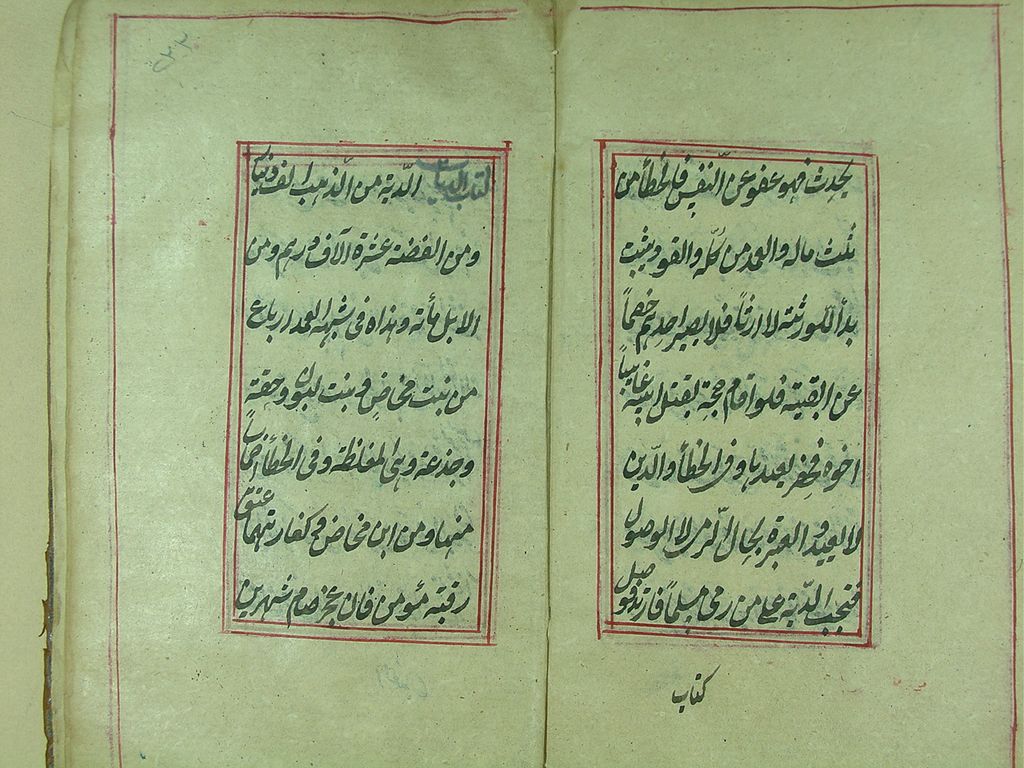 يحدث فهو عفو عن النفس فالخطأ من
ثلث ماله والعمد من كله والقود يثبت
بدأ للورثة لا ارثاً فلا يصير احدهم خصماً
عن البقية فلو اقام حجة بقتل ابيه غايباً
اخوه فحضر يعيدها وفى الخطأ والدين
لا يعيد والعبرة بحال الرمى لا الوصول
فتجب الدية على من رمى مسلماً فارتد فوصل
كتاب
كتاب الديات الدية من الذهب الف دينار
ومن الفضة عشرة آلاف درهم ومن
الابل مأتة وهذه فى شبه العمد ارباع
من بنت مخاض وبنت لبون وحقة
وجذعة وهى المغلظة وفى الخطأ اخماس
منها ومن ابن مخاض وكفارتهما عتق
رقبة مؤمن فان عجز صام شهرين